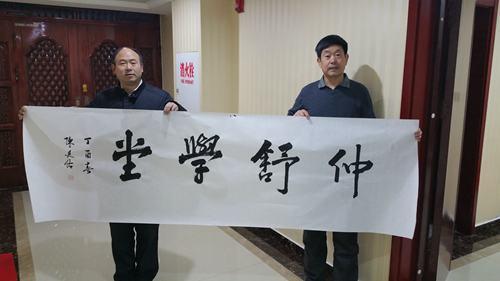 仲舒學堂
丁酉春
陳廷佑
消火栓